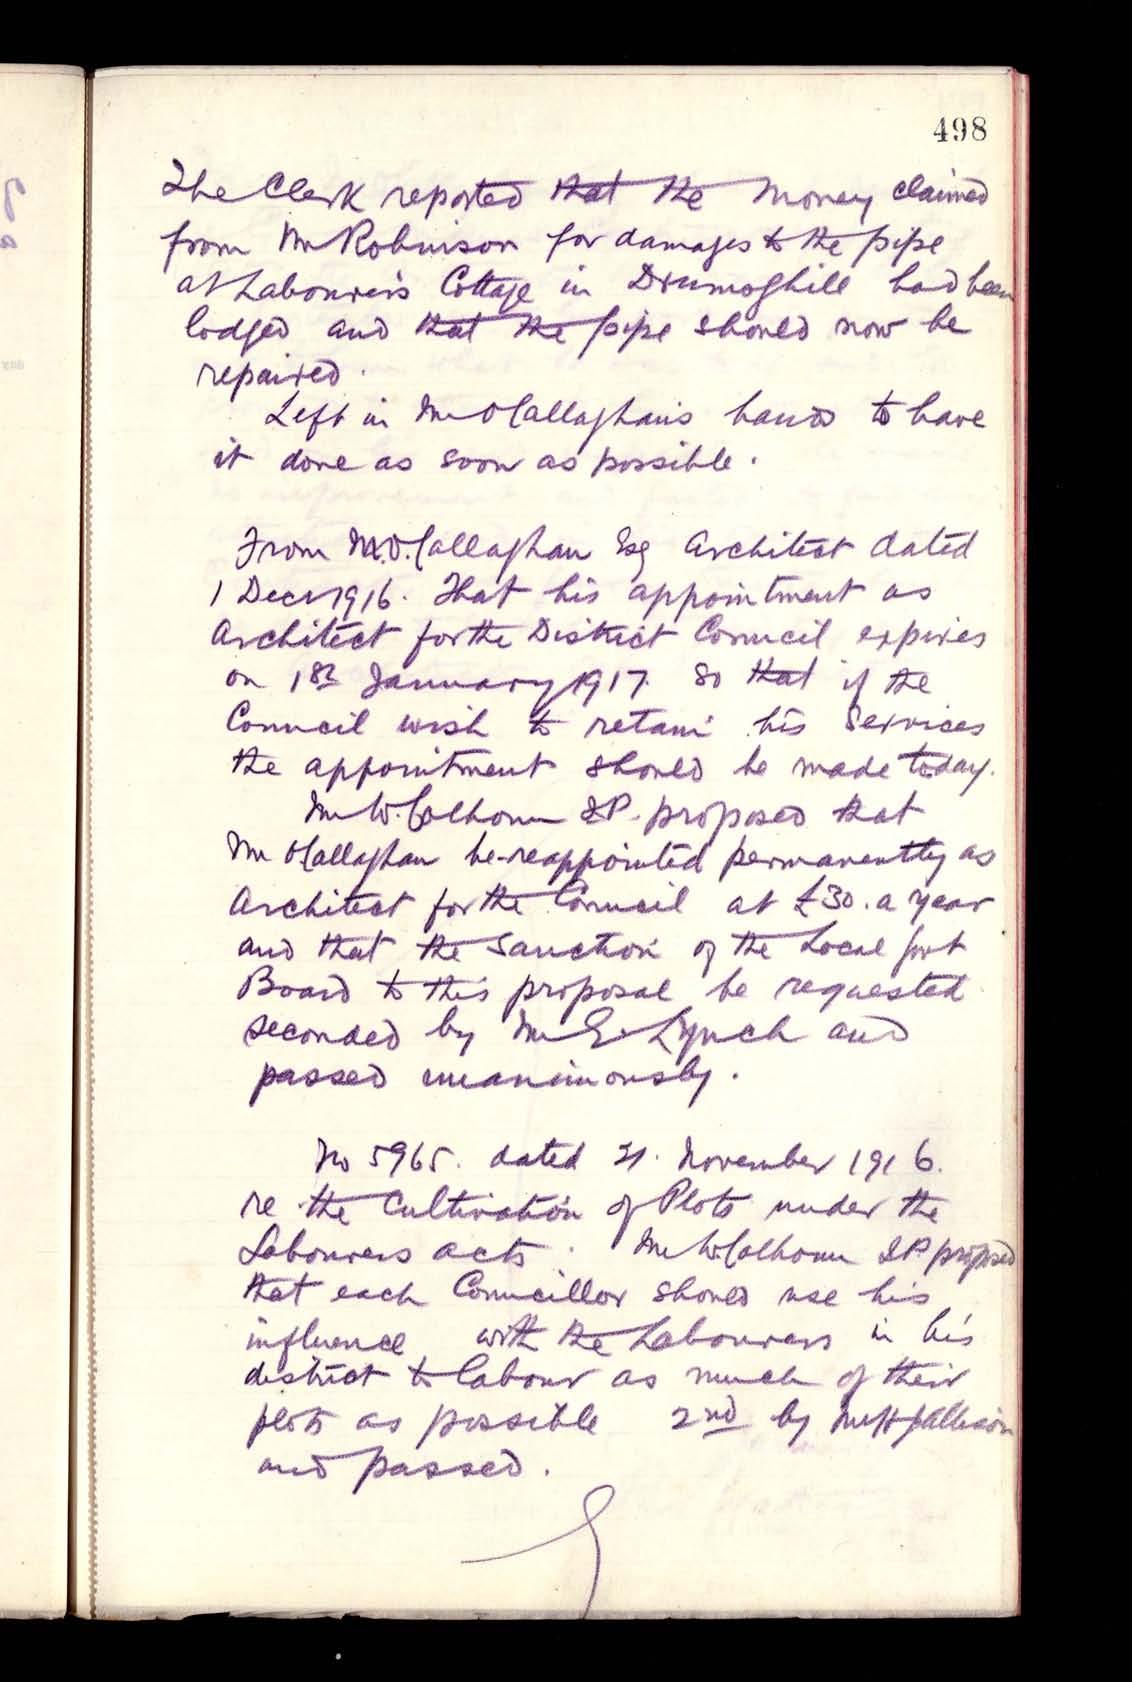 498
The Clerk reported that the money claimed
from Mr Robinson for damages to the pipe
at Labourer's Cottage in Drumoghill had been
lodged and that the pipe should now be
repaired.
Left in Mr O'Callaghan's hands to have
it done as soon as possible.
From M.O.Callaghan Esq Architect dated
1 Decr 1916. That his appointment as
Architect for the District Council expires
on 1st January 1917. So that if the
Council wish to retain his services
the appointment should be made today.
Mr W. Colhoun J.P. proposed that
Mr O'Callaghan be reappointed permanently as
Architect for the Council at £30. a year
and that the sanction of the Local Govt
Board to this proposal be requested
seconded by Mr E. Lynch and
passed unanimously.
No 5965. dated 21. November 1916.
re the Cultivation of Plots under the
Labourers acts. Mr W Colhoun J.P. proposed
that each Councillor should use his
influence with the Labourers in his
district to labour as much of their
plots as possible 2nd by Mr Allison
and passed.